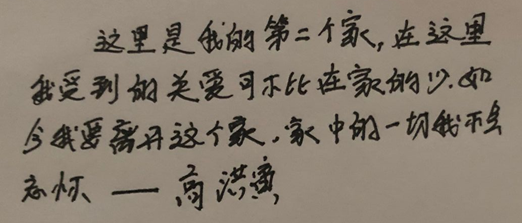 这里是我的第二个家,在这里
我受到的关爱可不比在家的少.如
今我要离开这个家.家中的一切我不会
忘怀 —— 高洪